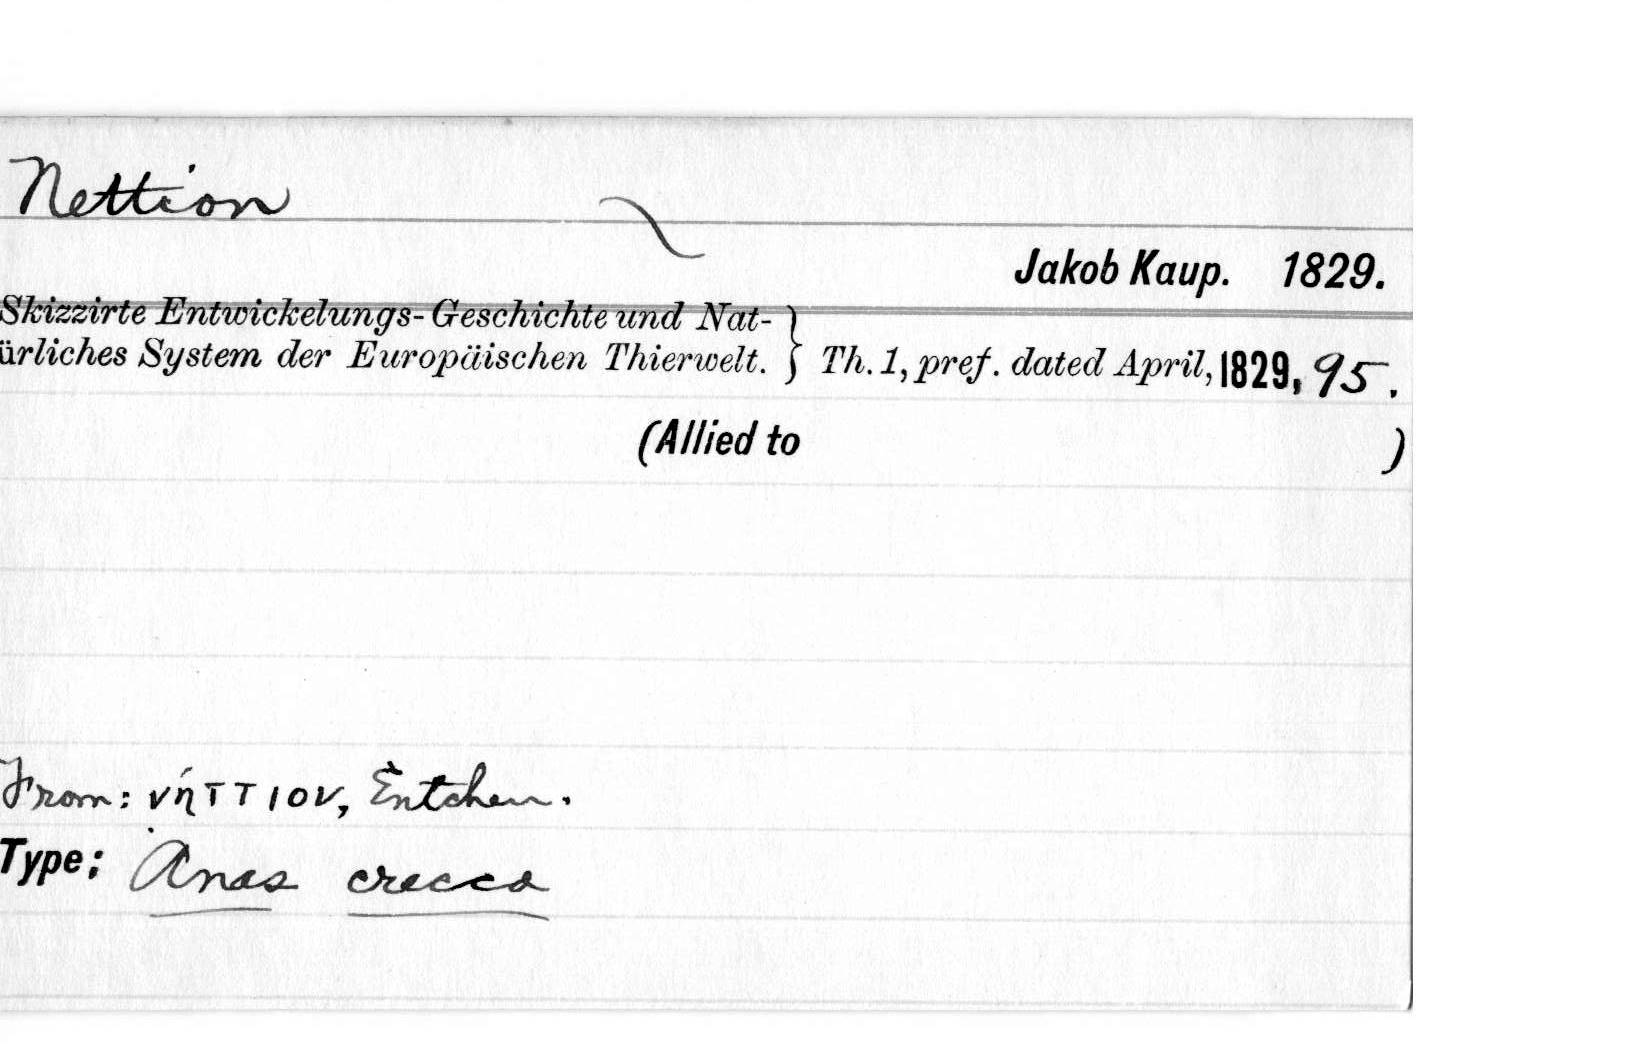 Nettion
Jakob Kaup. 1829.
Skizzirte Entwickelungs-Geschichte und Nat-
ürliches System der Europäischen Thierwelt. } Th. 1, pref. dated April, 1829, 95.
(Allied to )
From: νήττιον, Entchen.
Type: Anas crecca